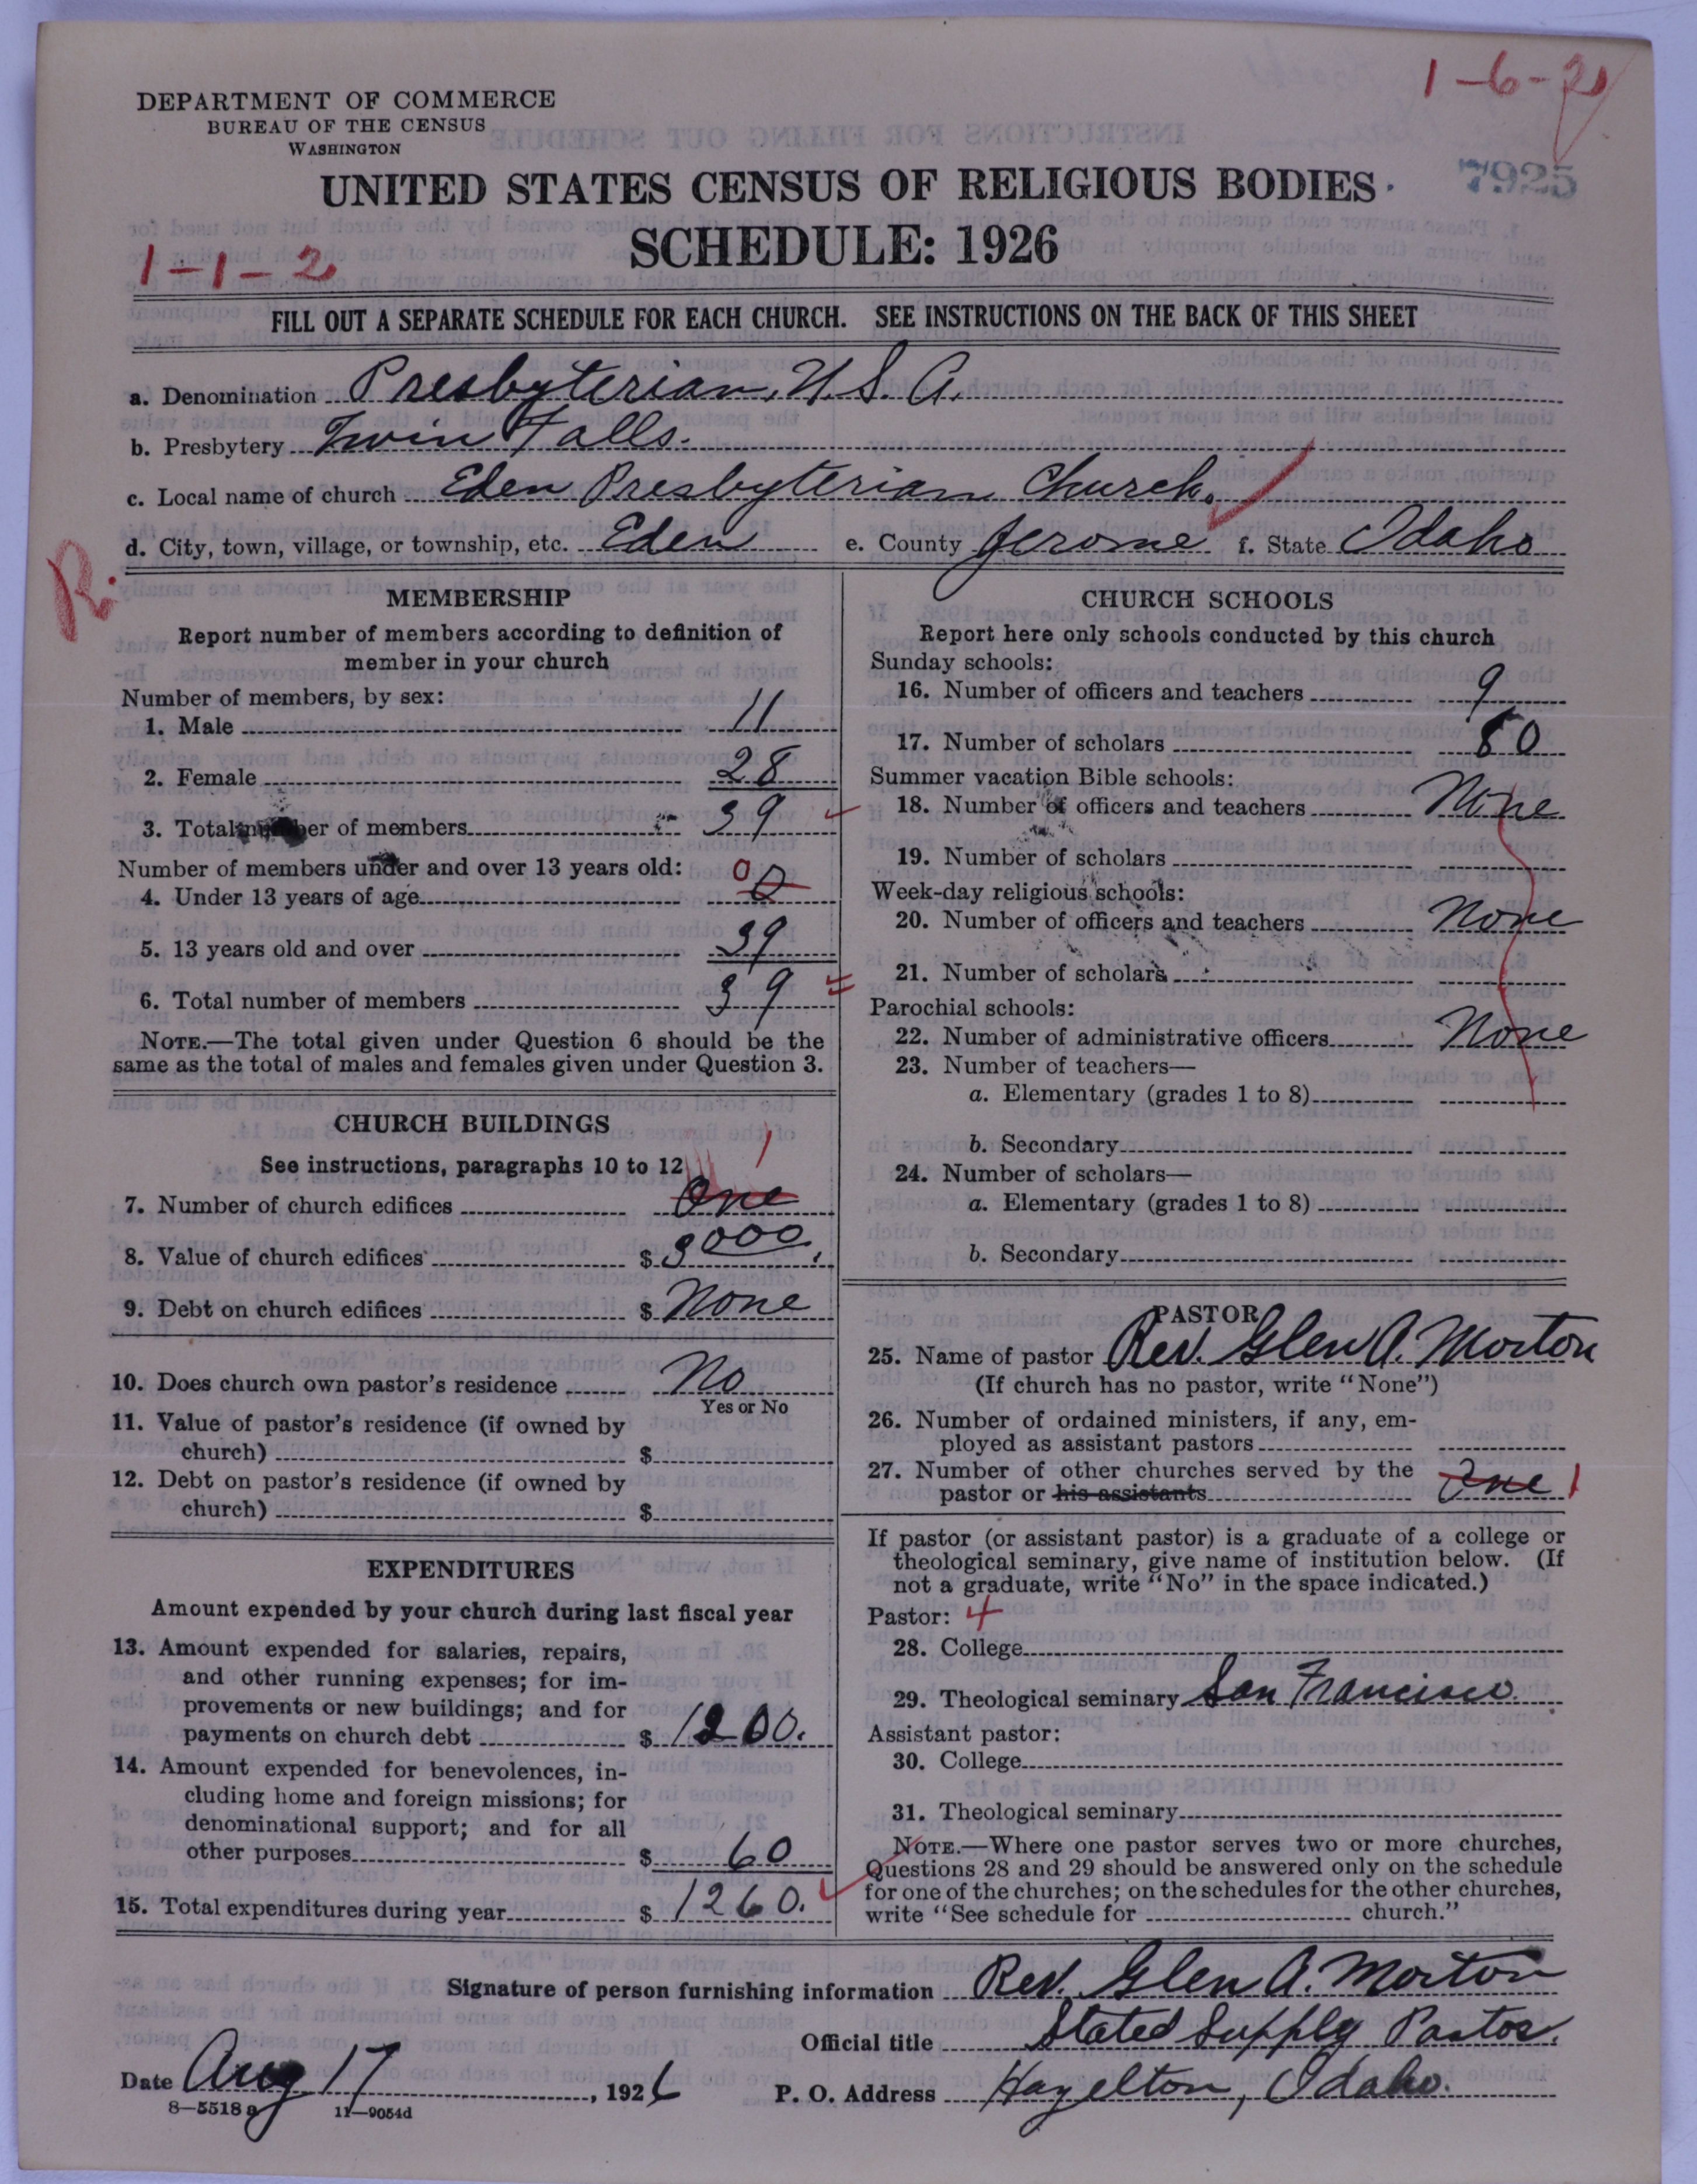 1-6-2
DEPARTMENT OF COMMERCE
BUREAU OF THE CENSUS
WASHINGTON
7925
UNITED STATES CENSUS OF RELIGIOUS BODIES
SCHEDULE: 1926
1-1-2
FILL OUT A SEPARATE SCHEDULE FOR EACH CHURCH. SEE INSTRUCTIONS ON THE BACK OF THIS SHEET
a. Denomination Presbyterian, U. S. A.
b. Presbytery Twin Falls.
c. Local name of church Eden Presbyterian Church.
d. City, town, village, or township, etc. Eden e. County Jerome f. State Idaho
R.
MEMBERSHIP
Report number of members according to definition of
member in your church
Number of members, by sex:
1. Male 11
2. Female 28
3. Total number of members 39
Number of members under and over 13 years old: 0
4. Under 13 years of age 0
5. 13 years old and over 39
6. Total number of members 39
NOTE.—The total given under Question 6 should be the
same as the total of males and females given under Question 3.
CHURCH BUILDINGS
See instructions, paragraphs 10 to 12 1
7. Number of church edifices One
8. Value of church edifices $ 3000.
9. Debt on church edifices $ None
10. Does church own pastor's residence No
Yes or No
11. Value of pastor's residence (if owned by
church) $
12. Debt on pastor's residence (if owned by
church) $
EXPENDITURES
Amount expended by your church during last fiscal year
13. Amount expended for salaries, repairs,
and other running expenses; for im-
provements or new buildings; and for
payments on church debt $ 1200.
14. Amount expended for benevolences, in-
cluding home and foreign missions; for
denominational support; and for all
other purposes $ 60
15. Total expenditures during year $ 1260.
CHURCH SCHOOLS
Report here only schools conducted by this church
Sunday schools:
16. Number of officers and teachers 9
17. Number of scholars 80
Summer vacation Bible schools:
18. Number of officers and teachers None
19. Number of scholars
Week-day religious schools:
20. Number of officers and teachers None
21. Number of scholars
Parochial schools:
22. Number of administrative officers None
23. Number of teachers—
a. Elementary (grades 1 to 8)
b. Secondary
24. Number of scholars—
a. Elementary (grades 1 to 8)
b. Secondary
PASTOR
25. Name of pastor Rev. Glen A. Morton
(If church has no pastor, write "None")
26. Number of ordained ministers, if any, em-
ployed as assistant pastors
27. Number of other churches served by the
pastor or his assistants One 1
If pastor (or assistant pastor) is a graduate of a college or
theological seminary, give name of institution below. (If
not a graduate, write "No" in the space indicated.)
Pastor: 4
28. College
29. Theological seminary San Francisco.
Assistant pastor:
30. College
31. Theological seminary
NOTE.—Where one pastor serves two or more churches,
Questions 28 and 29 should be answered only on the schedule
for one of the churches; on the schedules for the other churches,
write "See schedule for church."
Signature of person furnishing information Rev. Glen A. Morton
Official title Stated Supply Pastor.
Date Aug 17, 1926 P. O. Address Hazelton, Idaho.
8—5518a 11—9054d